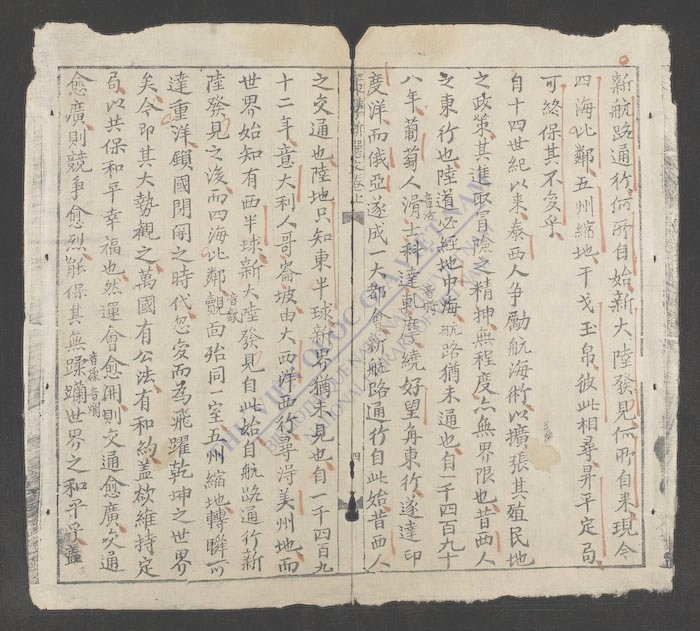 新航路通行何所自始新大陸發見何所自来現今
四海比鄰五州縮地干戈玉帛彼此相尋昇平定局
可終保其不変乎
自十四世紀以来泰西人争勵航海術以擴張其殖民地
之政策其進取冒險之精神無程度亦無界限也昔西人
之東行也陸道必經地中海航路猶未通也自一千四百九十
八年葡萄人滑士科達
音活
繞好望角東行遂達印
度洋而俄亞遂成一大都會新航路通行自此始昔西人
新選文卷上
四
之交通也陸地只知東半球新界猶未見也自一千四百九
十二年意大利人哥崙坡由大西洋西行尋得美州地而
世界始知有西半球新大陸發見自此始自航路通行新
陸發見之後而四海比鄰覿面殆同一室五州縮地轉瞬可
達重洋鎖國閉関之時代忽変而為飛躍乾坤之世界
矣今即其大勢觀之萬國有公法有和約盖欲維持定
局以共保和平幸福也然運會愈開則交通愈廣交通
愈廣則競争愈烈能保其無蹂躪世界之和平乎盖
THƯ VIỆN QUỐC GIA VIỆT NAM